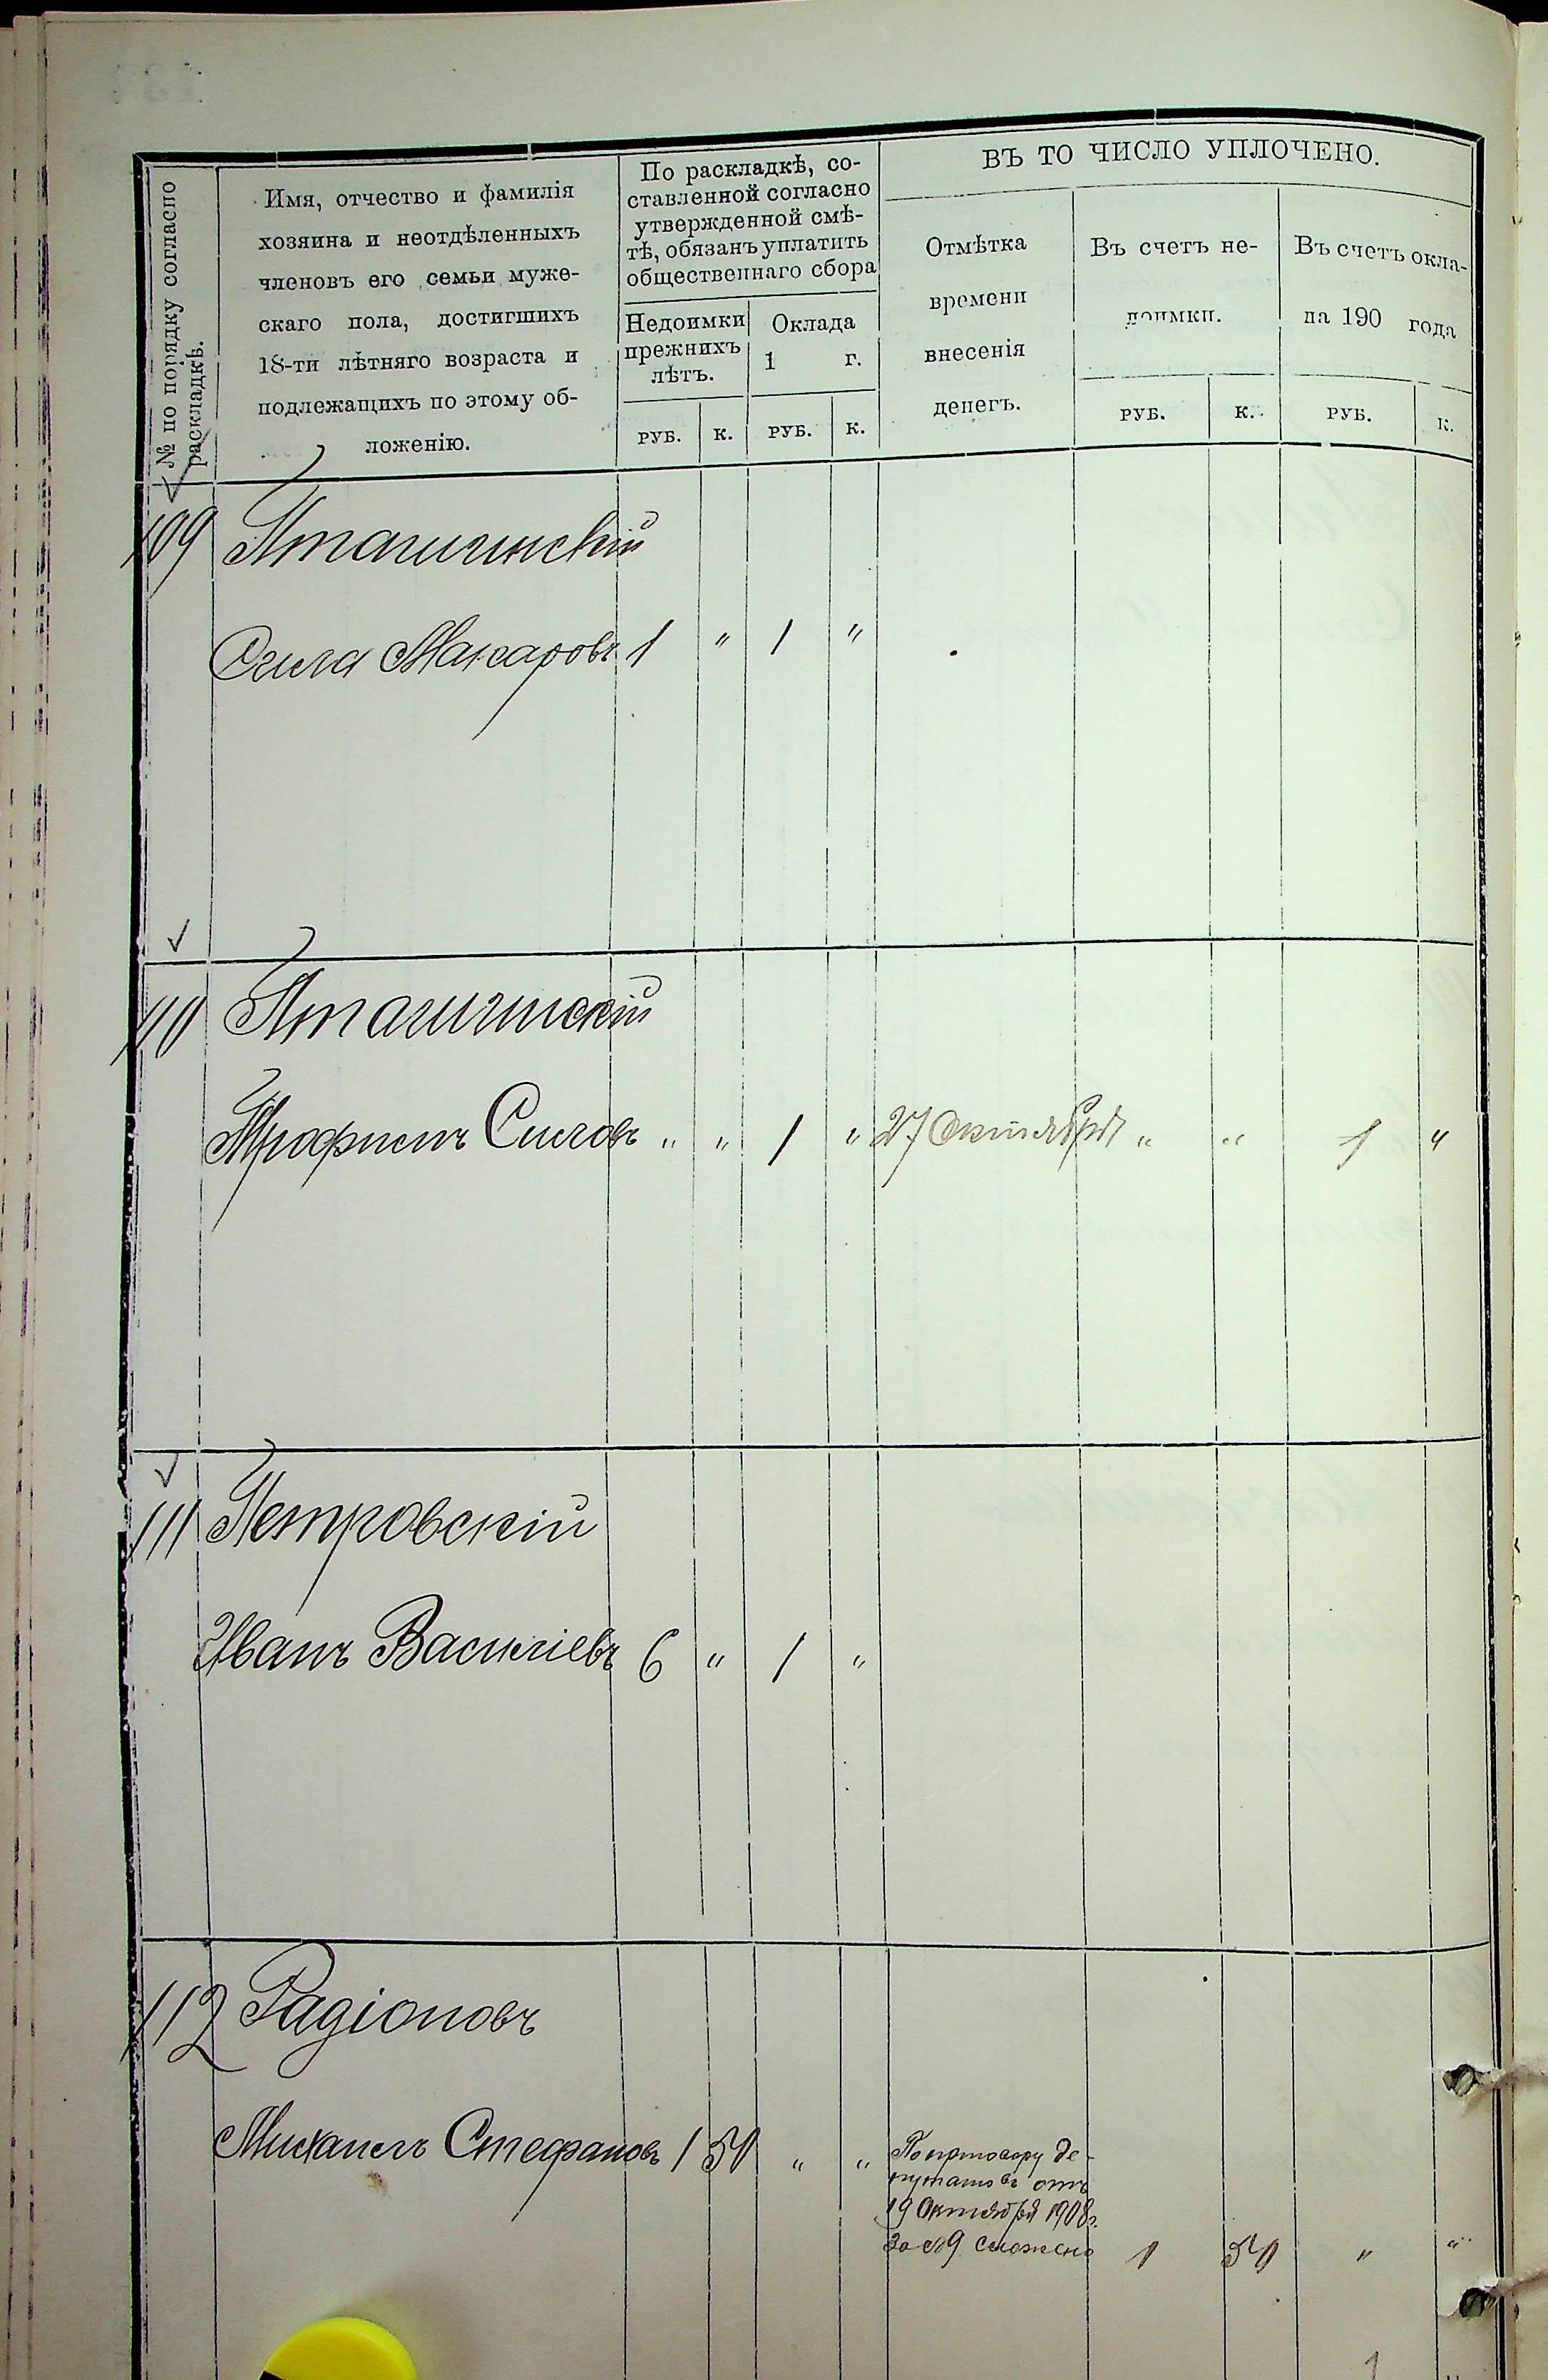 № по порядку согласно
раскладкѣ.
Имя, отчество и фамилія
хозяина и неотдѣленныхъ
членовъ его семьи муже-
скаго пола, достигшихъ
18-ти лѣтняго возраста и
подлежащихъ по этому об-
ложенію.
По раскладкѣ, со-
ставленной согласно
утвержденной смѣ-
тѣ, обязанъ уплатить
общественнаго сбора
Недоимки
прежнихъ
лѣтъ.
Оклада
1 г.
РУБ. К. РУБ. К.
ВЪ ТО ЧИСЛО УПЛОЧЕНО.
Отмѣтка
времени
внесенія
денегъ.
Въ счетъ не-
доимки.
РУБ. К.
Въ счетъ окла-
на 190 года
РУБ. К.
109 Пташинскій
Сила Макаровъ 1 " 1 "
110 Пташинскій
Трофимъ Силовъ " " 1 " 27 Октября " " 1 "
111 Петровскій
Иванъ Василіевъ 6 " 1 "
112 Радіоновъ
Михаилъ Стефановъ 1 50 " "
По приговору де-
путатовъ отъ
19 Октября 1908 г.
за №9 сложено 1 50 " "
1 "